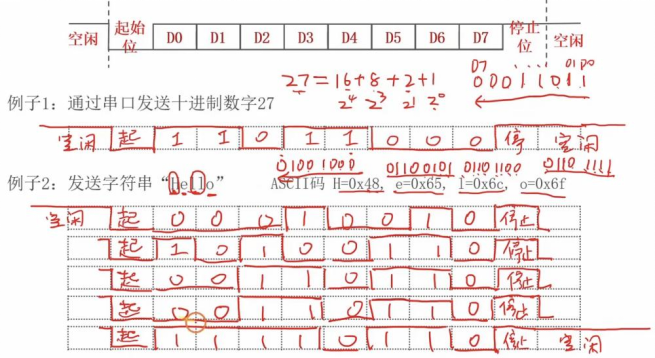 空闲 起始位 D0 D1 D2 D3 D4 D5 D6 D7 停止位 空闲
27=16+8+2+1
2⁴ 2³ 2¹ 2⁰
D7 .... D1D0
00011011
例子1：通过串口发送十进制数字27
空闲 起 1 1 0 1 1 0 0 0 停 空闲
01001000 01100101 01101100 01101111
例子2：发送字符串“hello” ASCII码 H=0x48, e=0x65, l=0x6c, o=0x6f
空闲 起 0 0 0 1 0 0 1 0 停止
起 1 0 1 0 0 1 1 0 停止
起 0 0 1 1 0 1 1 0 停止
起 0 0 1 1 0 1 1 0 停止
起 1 1 1 1 0 1 1 0 停止 空闲